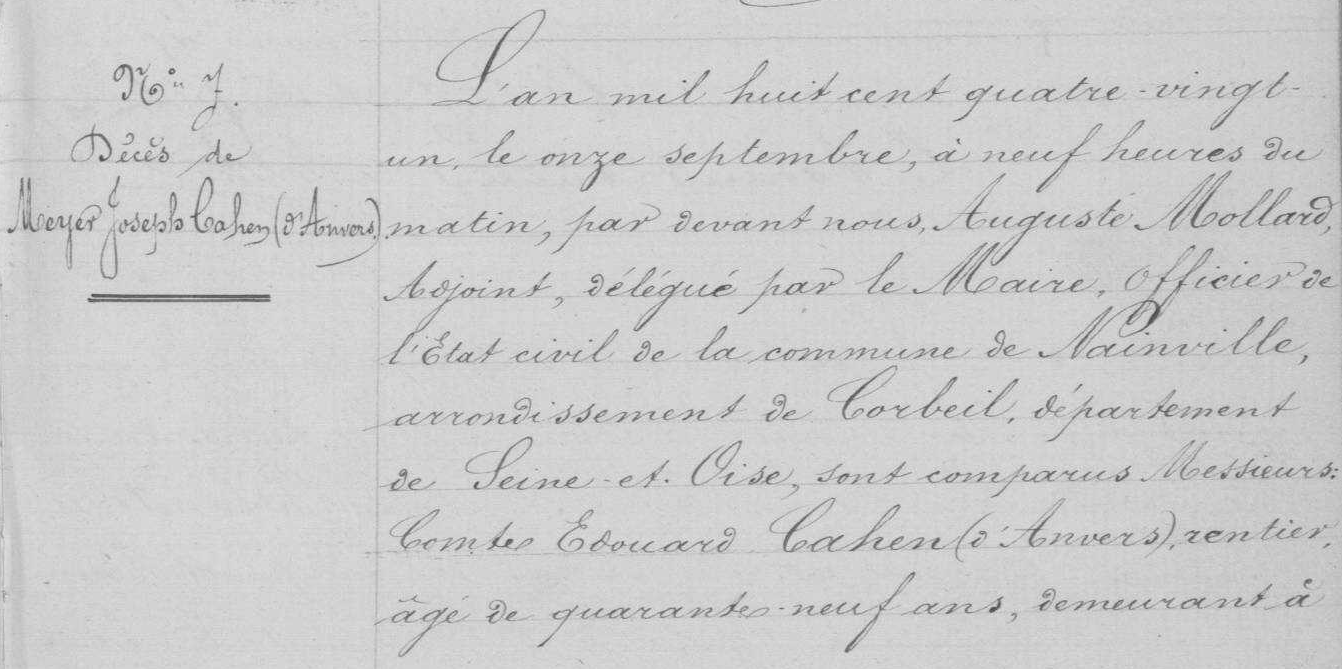 N° 7.
Décès de
Meyer Joseph Cahen (d'Anvers).
L'an mil huit cent quatre-vingt-
un, le onze septembre, à neuf heures du
matin, par devant nous, Auguste Mollard,
Adjoint, délégué par le Maire, Officier de
l'Etat civil de la commune de Nainville,
arrondissement de Corbeil, département
de Seine-et-Oise, sont comparus Messieurs:
Comte Edouard Cahen (d'Anvers), rentier,
âgé de quarante-neuf ans, demeurant à